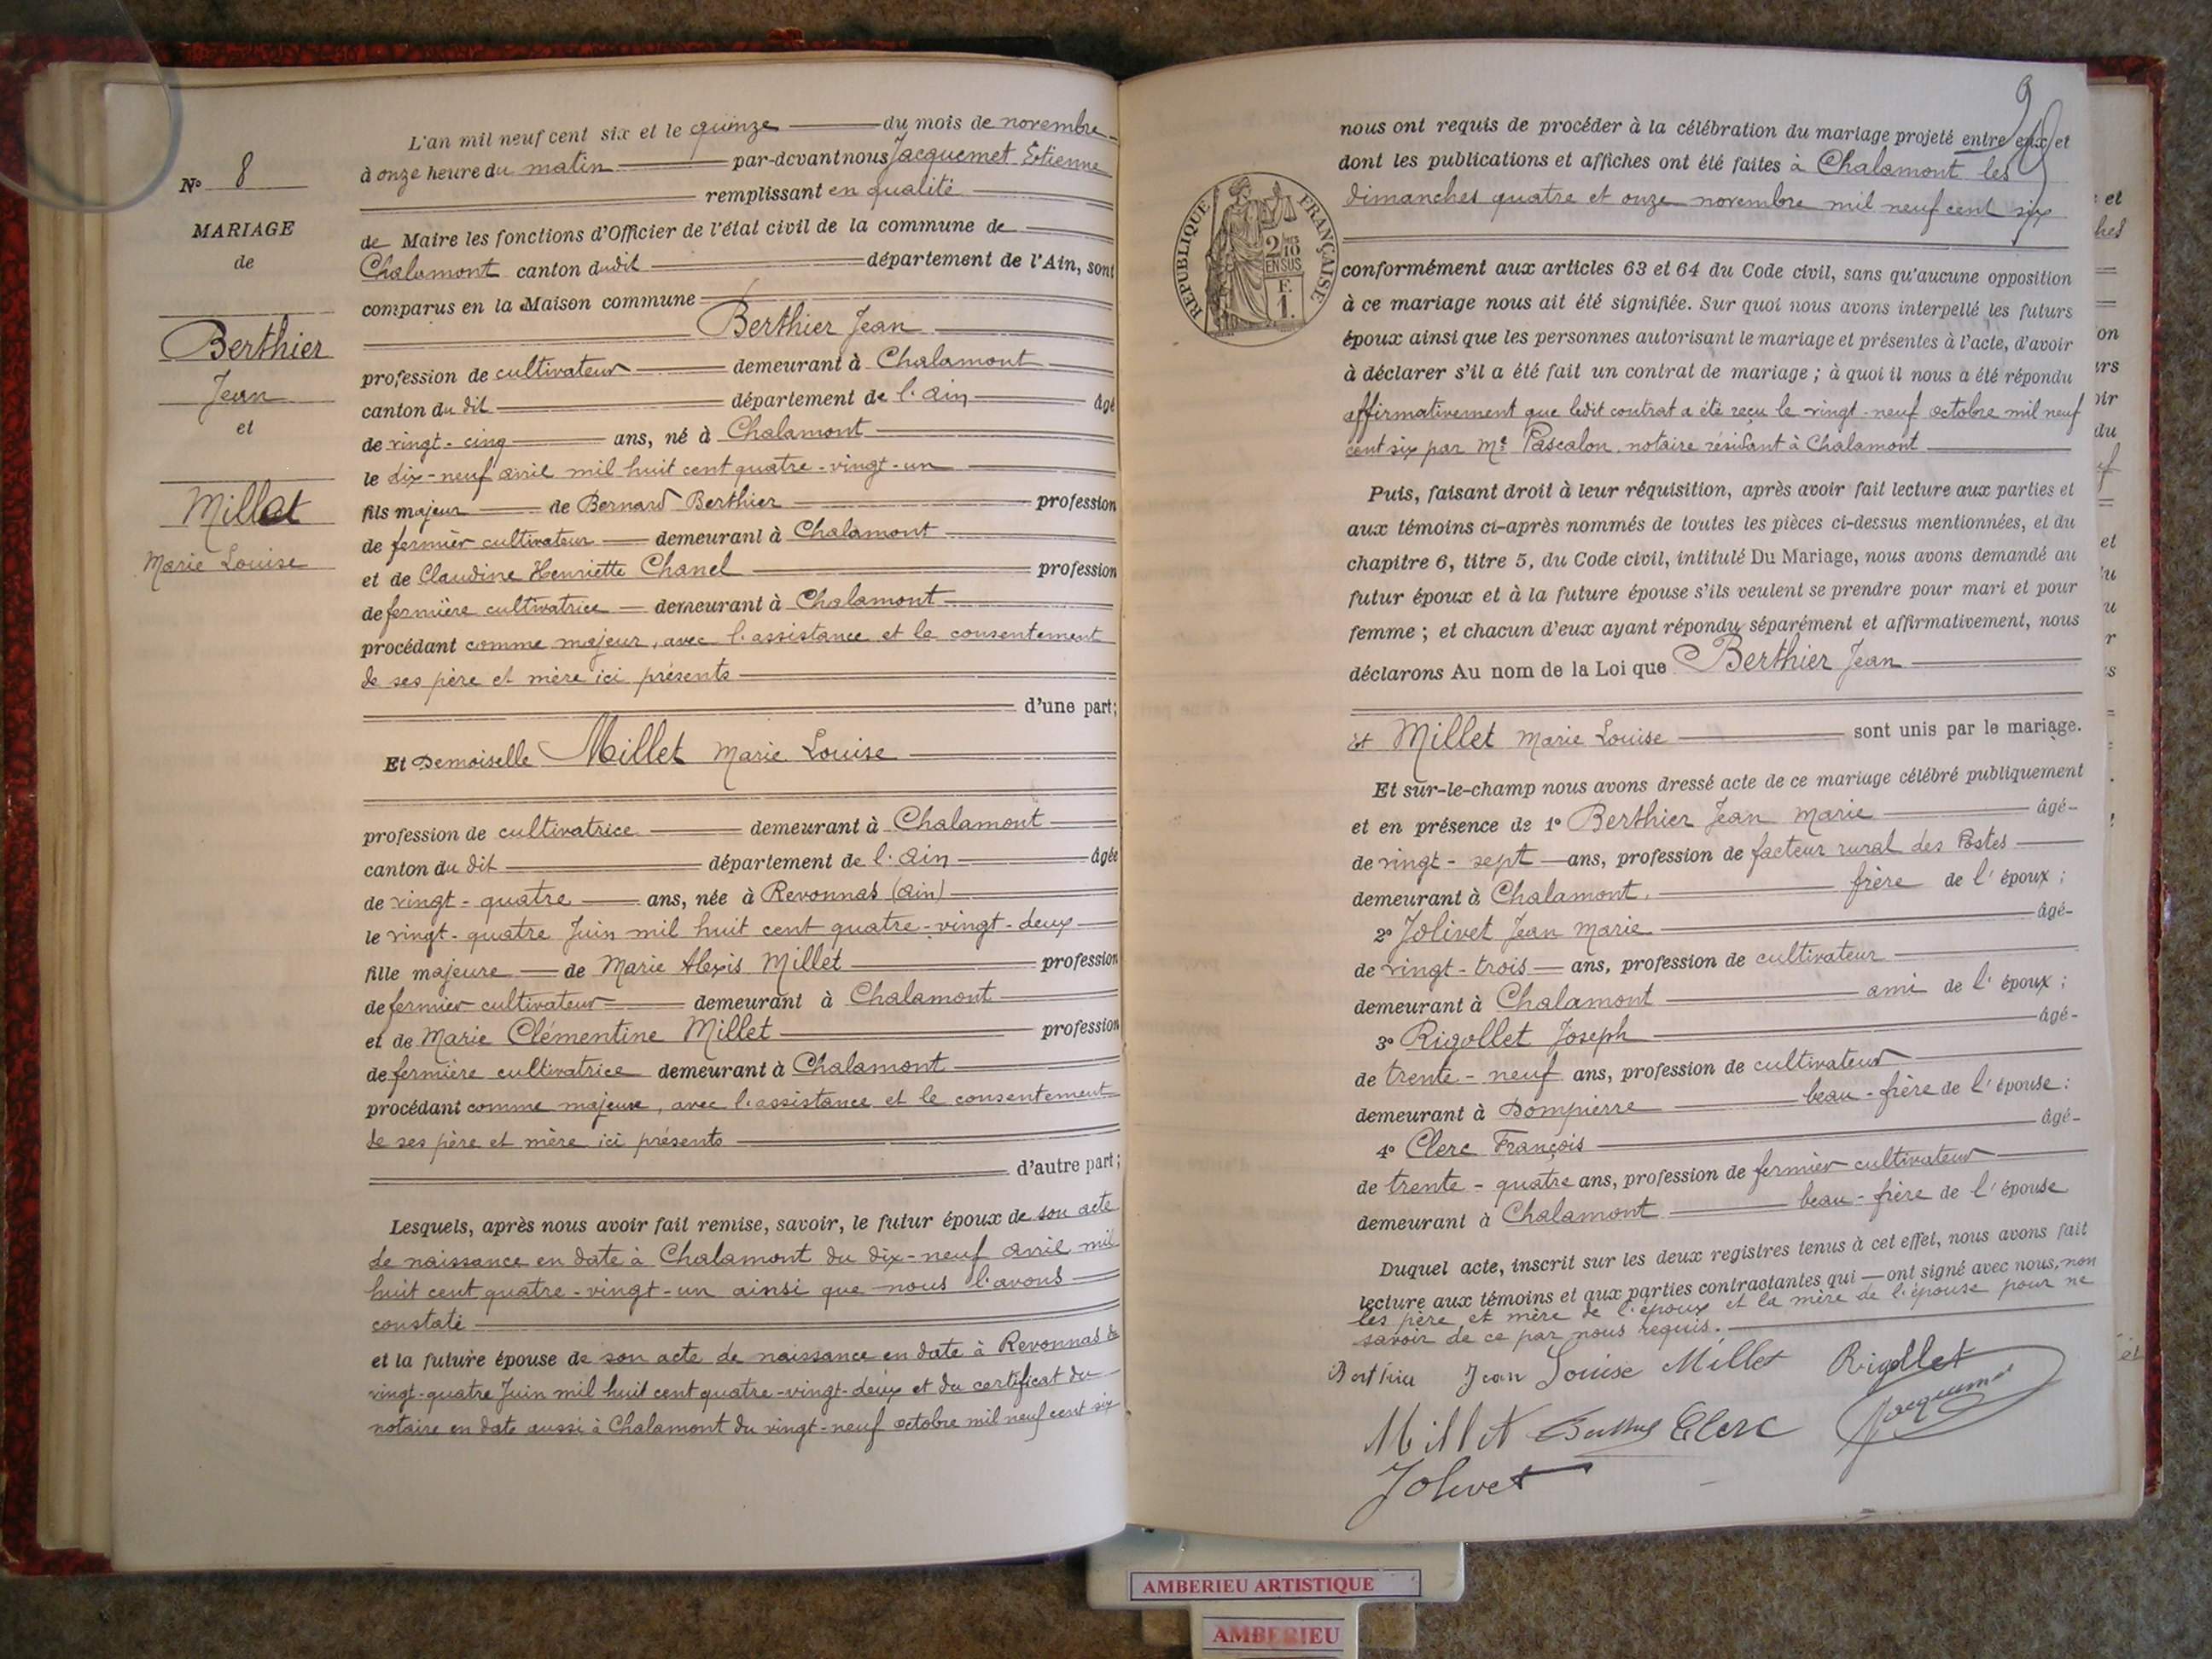 L'an mil neuf cent six et le quinze du mois de novembre
à onze heure du matin par-devant nous Jacquemet Etienne
remplissant en qualité
de Maire les fonctions d'Officier de l'état civil de la commune de
Chalamont canton dudit département de l'Ain, sont
comparus en la Maison commune
Berthier Jean
profession de cultivateur demeurant à Chalamont
canton du dit département de l'Ain âgé
de vingt-cinq ans, né à Chalamont
le dix-neuf avril mil huit cent quatre-vingt-un
fils majeur de Bernard Berthier profession
de fermier cultivateur demeurant à Chalamont
et de Claudine Henriette Chanel profession
de fermière cultivatrice demeurant à Chalamont
procédant comme majeur, avec l'assistance et le consentement
de ses père et mère ici présents
d'une part;
Et Demoiselle Millet Marie Louise
profession de cultivatrice demeurant à Chalamont
canton du dit département de l'Ain âgée
de vingt-quatre ans, née à Revonnas (Ain)
le vingt-quatre Juin mil huit cent quatre-vingt-deux
fille majeure de Marie Alexis Millet profession
de fermier cultivateur demeurant à Chalamont
et de Marie Clémentine Millet profession
de fermière cultivatrice demeurant à Chalamont
procédant comme majeure, avec l'assistance et le consentement
de ses père et mère ici présents
d'autre part;
Lesquels, après nous avoir fait remise, savoir, le futur époux de son acte
de naissance en date à Chalamont du dix-neuf avril mil
huit cent quatre-vingt-un ainsi que nous l'avons
constaté
et la future épouse de son acte de naissance en date à Revonnas du
vingt-quatre Juin mil huit cent quatre-vingt-deux et du certificat du
notaire en date aussi à Chalamont du vingt-neuf octobre mil neuf cent six
N° 8
MARIAGE
de
Berthier
Jean
et
Millet
Marie Louise
nous ont requis de procéder à la célébration du mariage projeté entre eux et
dont les publications et affiches ont été faites à Chalamont les
dimanches quatre et onze novembre mil neuf cent six
RÉPUBLIQUE FRANÇAISE
2/10
EN SUS
F.
1.
conformément aux articles 63 et 64 du Code civil, sans qu'aucune opposition
à ce mariage nous ait été signifiée. Sur quoi nous avons interpellé les futurs
époux ainsi que les personnes autorisant le mariage et présentes à l'acte, d'avoir
à déclarer s'il a été fait un contrat de mariage; à quoi il nous a été répondu
affirmativement que ledit contrat a été reçu le vingt-neuf octobre mil neuf
cent six par Me Pascalon, notaire résidant à Chalamont
Puis, faisant droit à leur réquisition, après avoir fait lecture aux parties et
aux témoins ci-après nommés de toutes les pièces ci-dessus mentionnées, et du
chapitre 6, titre 5, du Code civil, intitulé Du Mariage, nous avons demandé au
futur époux et à la future épouse s'ils veulent se prendre pour mari et pour
femme; et chacun d'eux ayant répondu séparément et affirmativement, nous
déclarons Au nom de la Loi que Berthier Jean
Et Millet Marie Louise sont unis par le mariage.
Et sur-le-champ nous avons dressé acte de ce mariage célébré publiquement
et en présence de 1° Berthier Jean Marie âgé
de vingt-sept ans, profession de facteur rural des Postes
demeurant à Chalamont, frère de l'époux;
2° Jolivet Jean Marie âgé
de vingt-trois ans, profession de cultivateur
demeurant à Chalamont ami de l'époux;
3° Rigollet Joseph âgé
de trente-neuf ans, profession de cultivateur
demeurant à Dompierre beau-frère de l'épouse;
4° Clerc François âgé
de trente-quatre ans, profession de fermier cultivateur
demeurant à Chalamont beau-frère de l'épouse
Duquel acte, inscrit sur les deux registres tenus à cet effet, nous avons fait
lecture aux témoins et aux parties contractantes qui ont signé avec nous, non
les père et mère de l'époux et la mère de l'épouse pour ne
savoir de ce par nous requis.
Berthier Jean Louise Millet Rigollet
Millet Berthier Clerc Jacquemet
Jolivet
AMBERIEU ARTISTIQUE
AMBERIEU